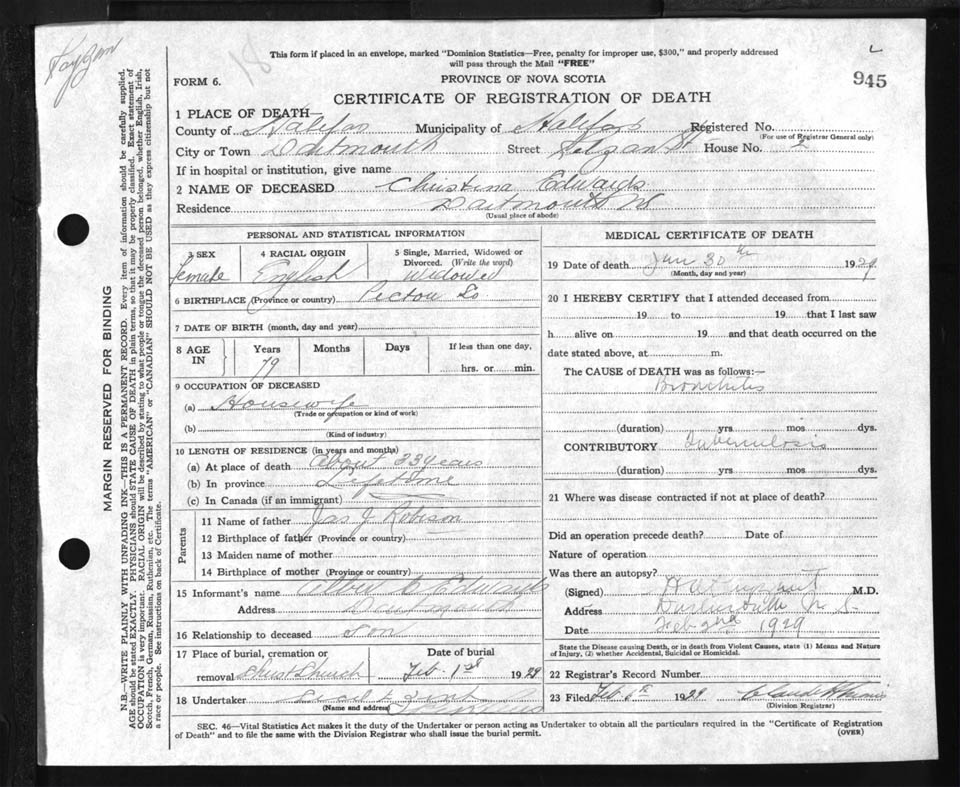 This form if placed in an envelope, marked "Dominion Statistics—Free, penalty for improper use, $300," and properly addressed
will pass through the Mail "FREE"
FORM 6.
PROVINCE OF NOVA SCOTIA
945
CERTIFICATE OF REGISTRATION OF DEATH
1 PLACE OF DEATH—
County of Halifax Municipality of Halifax Registered No.
(For use of Registrar General only)
City or Town Dartmouth Street St House No. 2
If in hospital or institution, give name
2 NAME OF DECEASED Christina Edwards
Residence Dartmouth NS
(Usual place of abode)
PERSONAL AND STATISTICAL INFORMATION
3 SEX 4 RACIAL ORIGIN 5 Single, Married, Widowed or Divorced. (Write the word)
female English Widowed
6 BIRTHPLACE (Province or country) Pictou Co
7 DATE OF BIRTH (month, day and year)
8 AGE IN Years Months Days If less than one day,
79 hrs. or min.
9 OCCUPATION OF DECEASED
(a) Housewife
(Trade or occupation or kind of work)
(b)
(Kind of industry)
10 LENGTH OF RESIDENCE (in years and months)
(a) At place of death about 33 years
(b) In province Lifetime
(c) In Canada (if an immigrant)
Parents
11 Name of father Jas J Robison
12 Birthplace of father (Province or country)
13 Maiden name of mother
14 Birthplace of mother (Province or country)
15 Informant's name Edwards
Address Dartmouth
16 Relationship to deceased Son
17 Place of burial, cremation or removal Christ Church Date of burial Feb. 1st 1929
18 Undertaker
(Name and address)
MEDICAL CERTIFICATE OF DEATH
19 Date of death Jan 30th 1929
(Month, day and year)
20 I HEREBY CERTIFY that I attended deceased from
19 to 19 that I last saw
h alive on 19 and that death occurred on the
date stated above, at m.
The CAUSE of DEATH was as follows:—
Bronchitis
(duration) yrs mos dys.
CONTRIBUTORY Tuberculosis
(duration) yrs mos. dys.
21 Where was disease contracted if not at place of death?
Did an operation precede death? Date of
Nature of operation
Was there an autopsy?
(Signed) M.D.
Address Dartmouth N. S.
Date Feb 2nd 1929
State the Disease causing Death, or in death from Violent Causes, state (1) Means and Nature
of Injury, (2) whether Accidental, Suicidal or Homicidal.
22 Registrar's Record Number
23 Filed Feb. 6th 1929
(Division Registrar)
SEC. 46—Vital Statistics Act makes it the duty of the Undertaker or person acting as Undertaker to obtain all the particulars required in the "Certificate of Registration
of Death" and to file the same with the Division Registrar who shall issue the burial permit.
(OVER)
MARGIN RESERVED FOR BINDING
N.B.—WRITE PLAINLY WITH UNFADING INK—THIS IS A PERMANENT RECORD. Every item of information should be carefully supplied.
AGE should be stated EXACTLY. PHYSICIANS should STATE CAUSE OF DEATH in plain terms, so that it may be properly classified. Exact statement of
OCCUPATION is very important. RACIAL ORIGIN will be described by stating to what people or tongue the deceased person belonged, whether English, Irish,
Scotch, French, German, Russian, Ruthenian, etc. The terms "AMERICAN" or "CANADIAN" SHOULD NOT BE USED as they express citizenship but not
a race or people. See instructions on back of Certificate.